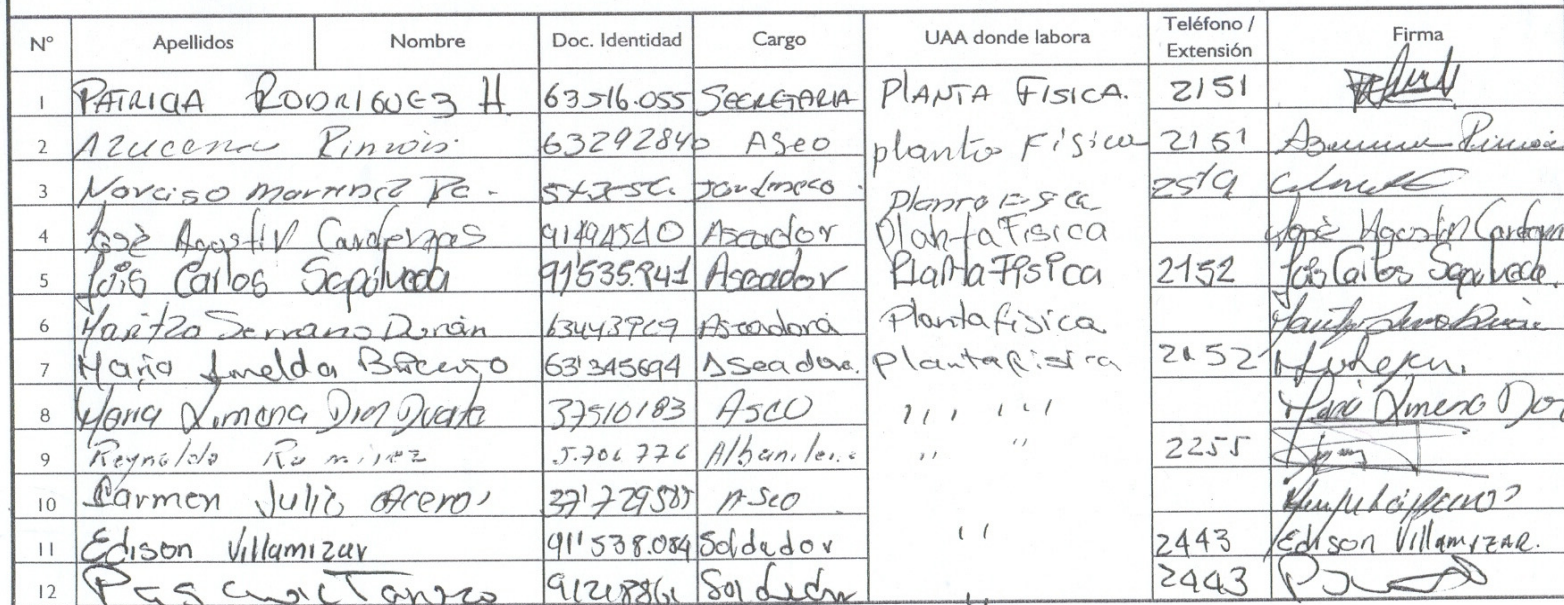 N° Apellidos Nombre Doc. Identidad Cargo UAA donde labora Teléfono / Extensión Firma
1 PATRICIA RODRIGUEZ H 63516.055 SECRETARIA PLANTA FISICA. 2151
2 Azucena Rincón. 63292840 ASeo planta Física 2151 Azucena Rincón
3 Narciso 2519
4 José Agustín Cardenas 91494540 Aseador Planta Fisica José Agostin Cardenas
5 Luis Carlos Sepulveda 91'535.941 Aseador Planta Fisica 2152 Luis Carlos Sepulveda.
6 Maritza Serrano Durán 63443969 Aseadora Planta fisica
7 Maria Imelda Briceño 63'345694 ASeadora. Planta fisica 2152
8 Maria Ximena Diaz Duarte 37510183 ASeo ,,, ,,,
9 Reynaldo Ramirez 5.706 776 ,, ,, 2255
10 Carmen Julia Aceros ASeo
11 Edison Villamizar 91'538.084 Soldador ,, 2443 Edison VillamIZAR.
12 Soldador 2443